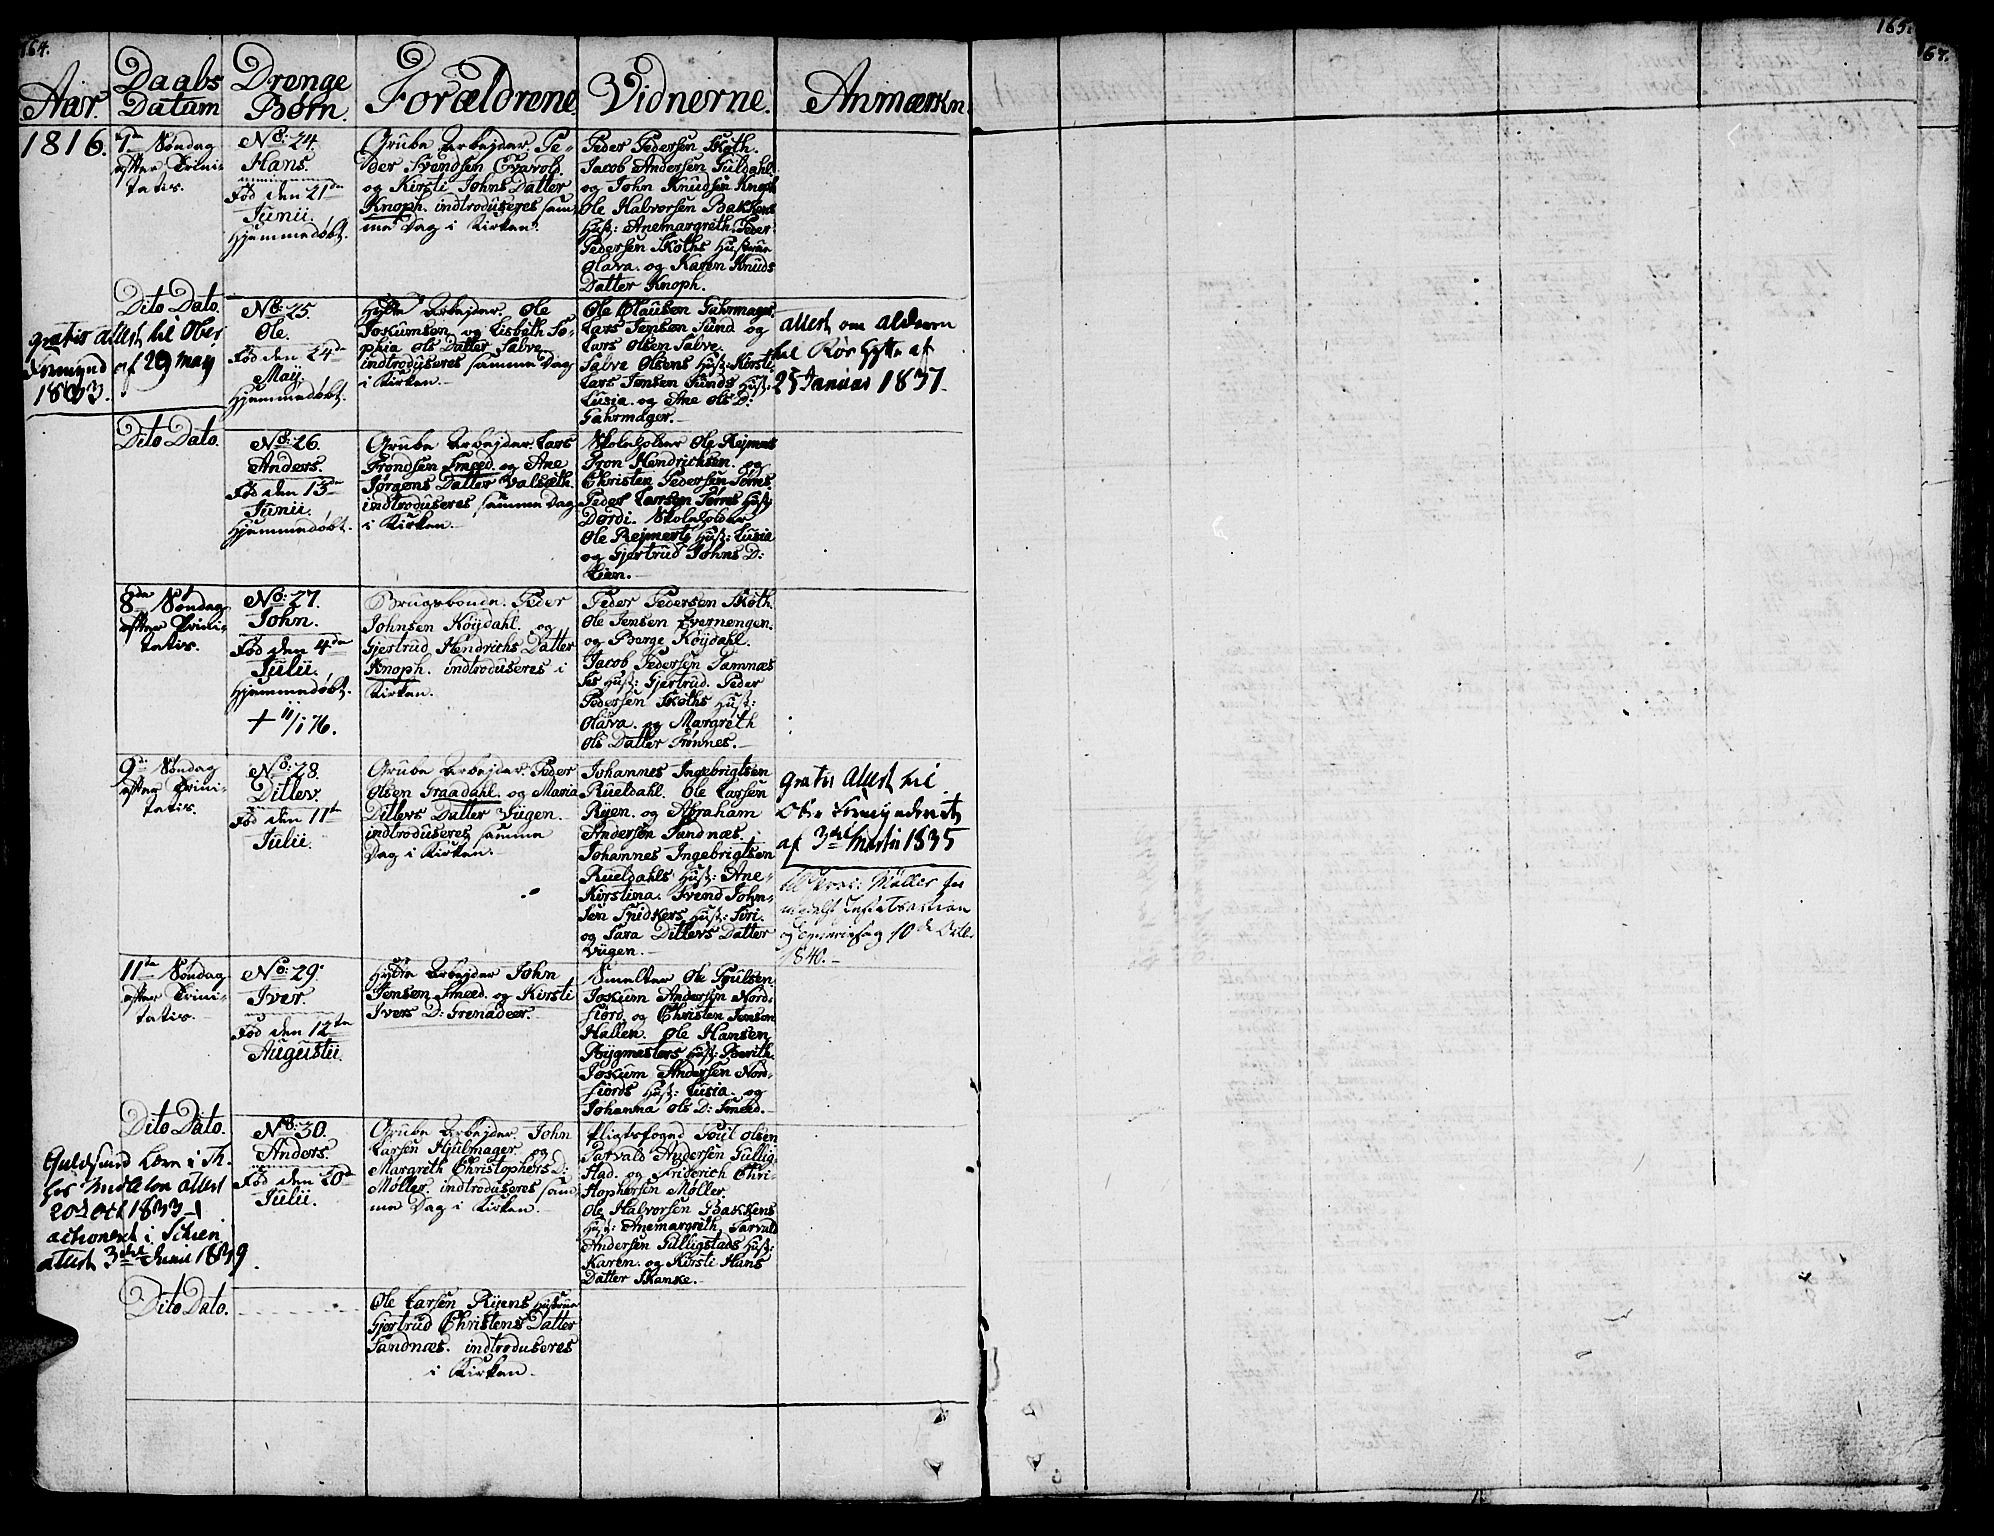 164.
165.
67.
Aar.
Daabs Datum
Drenge Børn.
Forældrene
Vidnerne.
Anmærkn.
1816.
7de Søndag
efter Trini-
tatis.
No: 24.
Hans.
Fød den 21de
Junii.
Hjemmedøbt.
Grube Arbejder. Pe-
der Svendsen Evavold.
og Kirsti Johns Datter
Knoph. indtroduseres sam-
me Dag i Kirken.
Peder Pedersen Skoth.
Jacob Andersen Guldahl.
og John Knudsen Knoph
Ole Halvorsen Bakkens
Hust: Anemargreth. Peder
Pedersen Skoths Hustrue
Olava. og Karen Knuds
Datter Knoph.
Dito Dato.
gratis attest til Ober
Formynd af 29 May
1833.
No: 25.
Ole.
Fød den 24de
Maij.
Hjemmedøbt.
Hytte Arbejder. Ole
Jokumsen og Lisbeth So-
phia Ols Datter Salve.
indtroduseres samme Dag
i Kirken.
Ole Olausen Gahrmager.
Lars Jensen Sund og
Lars Olsen Salve.
Salve Olsens Hust: Kirsti
Lars Jensen Sunds Hust:
Lusia. og Ane Ols D:
Gahrmager.
attest om alderen
til Rør Hytte af
25 Januar 1837.
Dito Dato.
No: 26.
Anders.
Fød den 13de
Junii.
Hjemmedøbt.
Grube Arbejder. Lars
Trondsen Smeed. og Ane
Jørgens Datter Valseth.
indtroduseres samme Dag
i Kirken.
Skoleholder Ole Rejmers
Iron Hendrichsen. og
Christen Pedersen Tørres
Peder Larsen Tørres Hust:
Dordi. Skoleholder
Ole Rejmerts Hust: Lusia
og Gjertrud Johns D:
Lien.
8de Søndag
efter Trini-
tatis.
No: 27.
John.
Fød den 4de
Julii.
Hjemmedøbt.
+ 11/1 76.
Brugsbonde. Peder
Johnsen Köijdahl. og
Gjertrud Hendrichs Datter
Knoph. indtroduseres i
Kirken.
Peder Pedersen Skoth.
Ole Jensen Evernengen.
og Berge Köijdahl.
Jacob Pedersen Tamnæs
ses Hust: Gjertrud. Peder
Pedersen Skoths Hust:
Olava. og Margreth
Ols Datter Trønnes.
9de Søndag
efter Trini-
tatis.
No: 28.
Ditlev.
Fød den 11te
Julii.
Grube Arbejder. Peder
Olsen Graadahl. og Maria
Ditlevs Datter Vügen.
indtroduseres samme
Dag i Kirken.
Johannes Ingebrigtsen
Rueldahl. Ole Larsen
Rijen. og Abraham
Andersen Sandnæs.
Johannes Ingebrigtsen
Rueldahls Hust: Ane-
Kirstina. Svend John-
sen Snidkers Hust: Siri.
og Sara Ditlevs Datter
Vügen.
gratis Attest til
Ober Formynderiet
af 3die Martii 1835
Møller
og 10de Octbr
1840.
11te Søndag
efter Trini-
tatis.
No: 29.
Iver.
Fød den 12te
Augustii.
Hytte Arbejder John
Jensen Smeed. og Kirsti
Ivers D: Grenadeer.
Smelter Ole Poulsen.
Jokum Andersen Nord-
fiord og Christen Jensen
Hallen. Ole Hansen
Bygmesters Hust: Berith.
Jokum Andersen Nor-
fiords Hust: Lusia. og
Johanna Ols D: Smeed.
Dito Dato.
attest
20d Oct 1833
i
attest 3die Junii 1839.
No: 30.
Anders.
Fød den 20de
Julii.
Grube Arbejder. John
Larsen Hjulmager. og
Margreth Christophers D:
Møller. indtroduseres sam-
me Dag i Kirken.
Pligtsfoged Poul Olsen
Tarvald Andersen Gillig-
stad. og Friderich Chri-
stophersen Møller.
Ole Halvorsen Bakkens
Hust: Anemargreth. Tarvald
Andersen Gilligstads Hust:
Karen. og Kirsti Hans
Datter Skanke.
Dito Dato.
Ole Larsen Rijens Hustrue
Gjertrud Christens Datter
Sandnæs. indtroduseres
i Kirken.